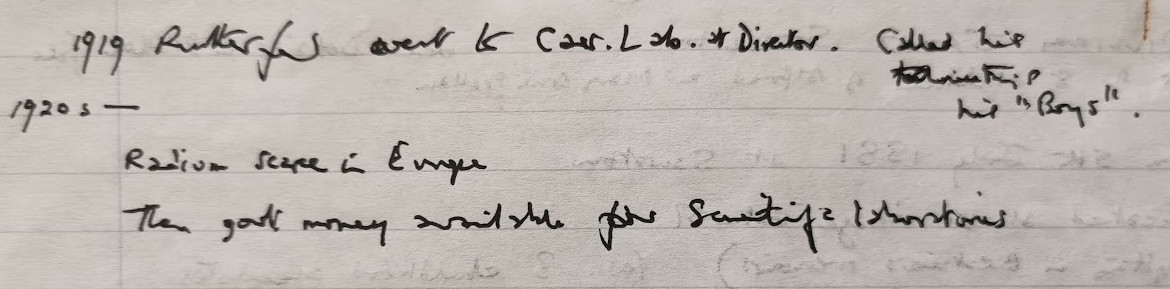 1919 Rutherford went to Cav. Lab. as Director. Called his
his "Boys".
1920s —
Radium scarce in Europe
Then govt money available for Scientific laboratories